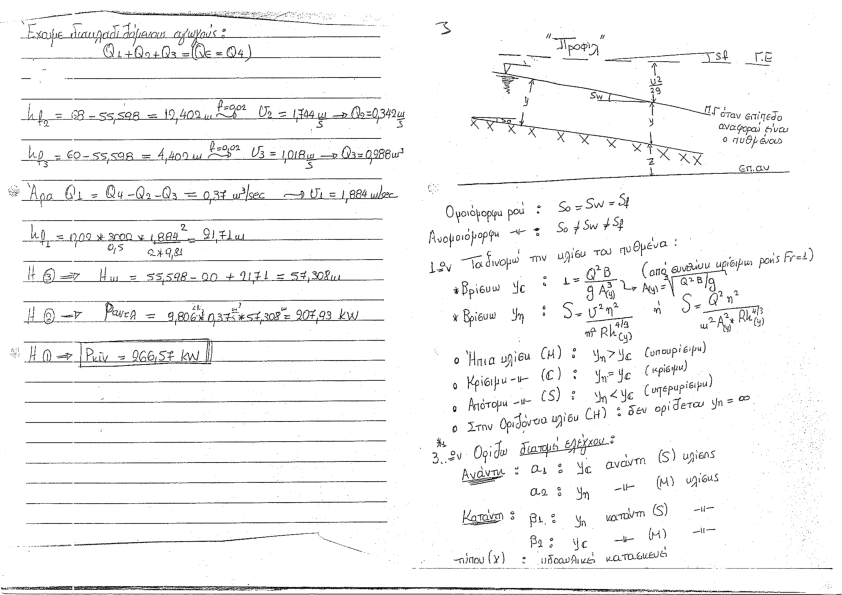 Έχουμε διακλαδιζόμενους αγωγούς:
Q1+Q2+Q3=(QE=Q4)
hf2 = 68-55,598 = 12,402 m f=0,02 U2 = 1,744 m/s → Q2=0,342 m/s
hf3 = 60-55,598 = 4,402 m f=0,02 U3 = 1,018 m/s → Q3=0,988 m³
Άρα Q1 = Q4-Q2-Q3 = 0,37 m³/sec → U1 = 1,884 m/sec
hf1 = 0,02 * 3000/0,5 * 1,884²/2*9,81 = 21,71 m
Η ③ ⇒ Hm = 55,598-20+21,71 = 57,308 m
Η ② → Pαντλ = 9,806 * 0,37 * 57,308 = 207,93 kW
Η ① ⇒ Pκίν = 266,57 kW
3
"Προφίλ"
Sf Γ.Ε
U²/2g
Sw
y
y
Π.Γ όταν επίπεδο
αναφοράς είναι
ο πυθμένας
So
z
επ.αν
Ομοιόμορφη ροή : So = Sw = Sf
Ανομοιόμορφη -//- : So ≠ Sw ≠ Sf
1ον Ταξινομώ την κλίση του πυθμένα :
* Βρίσκω yc : 1 = Q²B/g A³(y) (από συνθήκη κρίσιμης ροής Fr=1) A(y) = ∛Q²B/g
* Βρίσκω yn : S = U²n²/m² Rh^4/3(y) ή S = Q²n²/m² A²(y) * Rh^4/3(y)
o Ήπια κλίση (M) : yn > yc (υποκρίσιμη)
o Κρίσιμη -//- (C) : yn = yc (κρίσιμη)
o Απότομη -//- (S) : yn < yc (υπερκρίσιμη)
o Στην Οριζόντια κλίση (H) : δεν ορίζεται yn = ∞
3..ον Ορίζω διατομές ελέγχου :
Ανάντη : α1 : yc ανάντη (S) κλίσης
α2 : yn -//- (M) κλίσης
Κατάντη : β1 : yn κατάντη (S) -//-
β2 : yc -//- (M) -//-
τύπου (x) : υδραυλικές κατασκευές